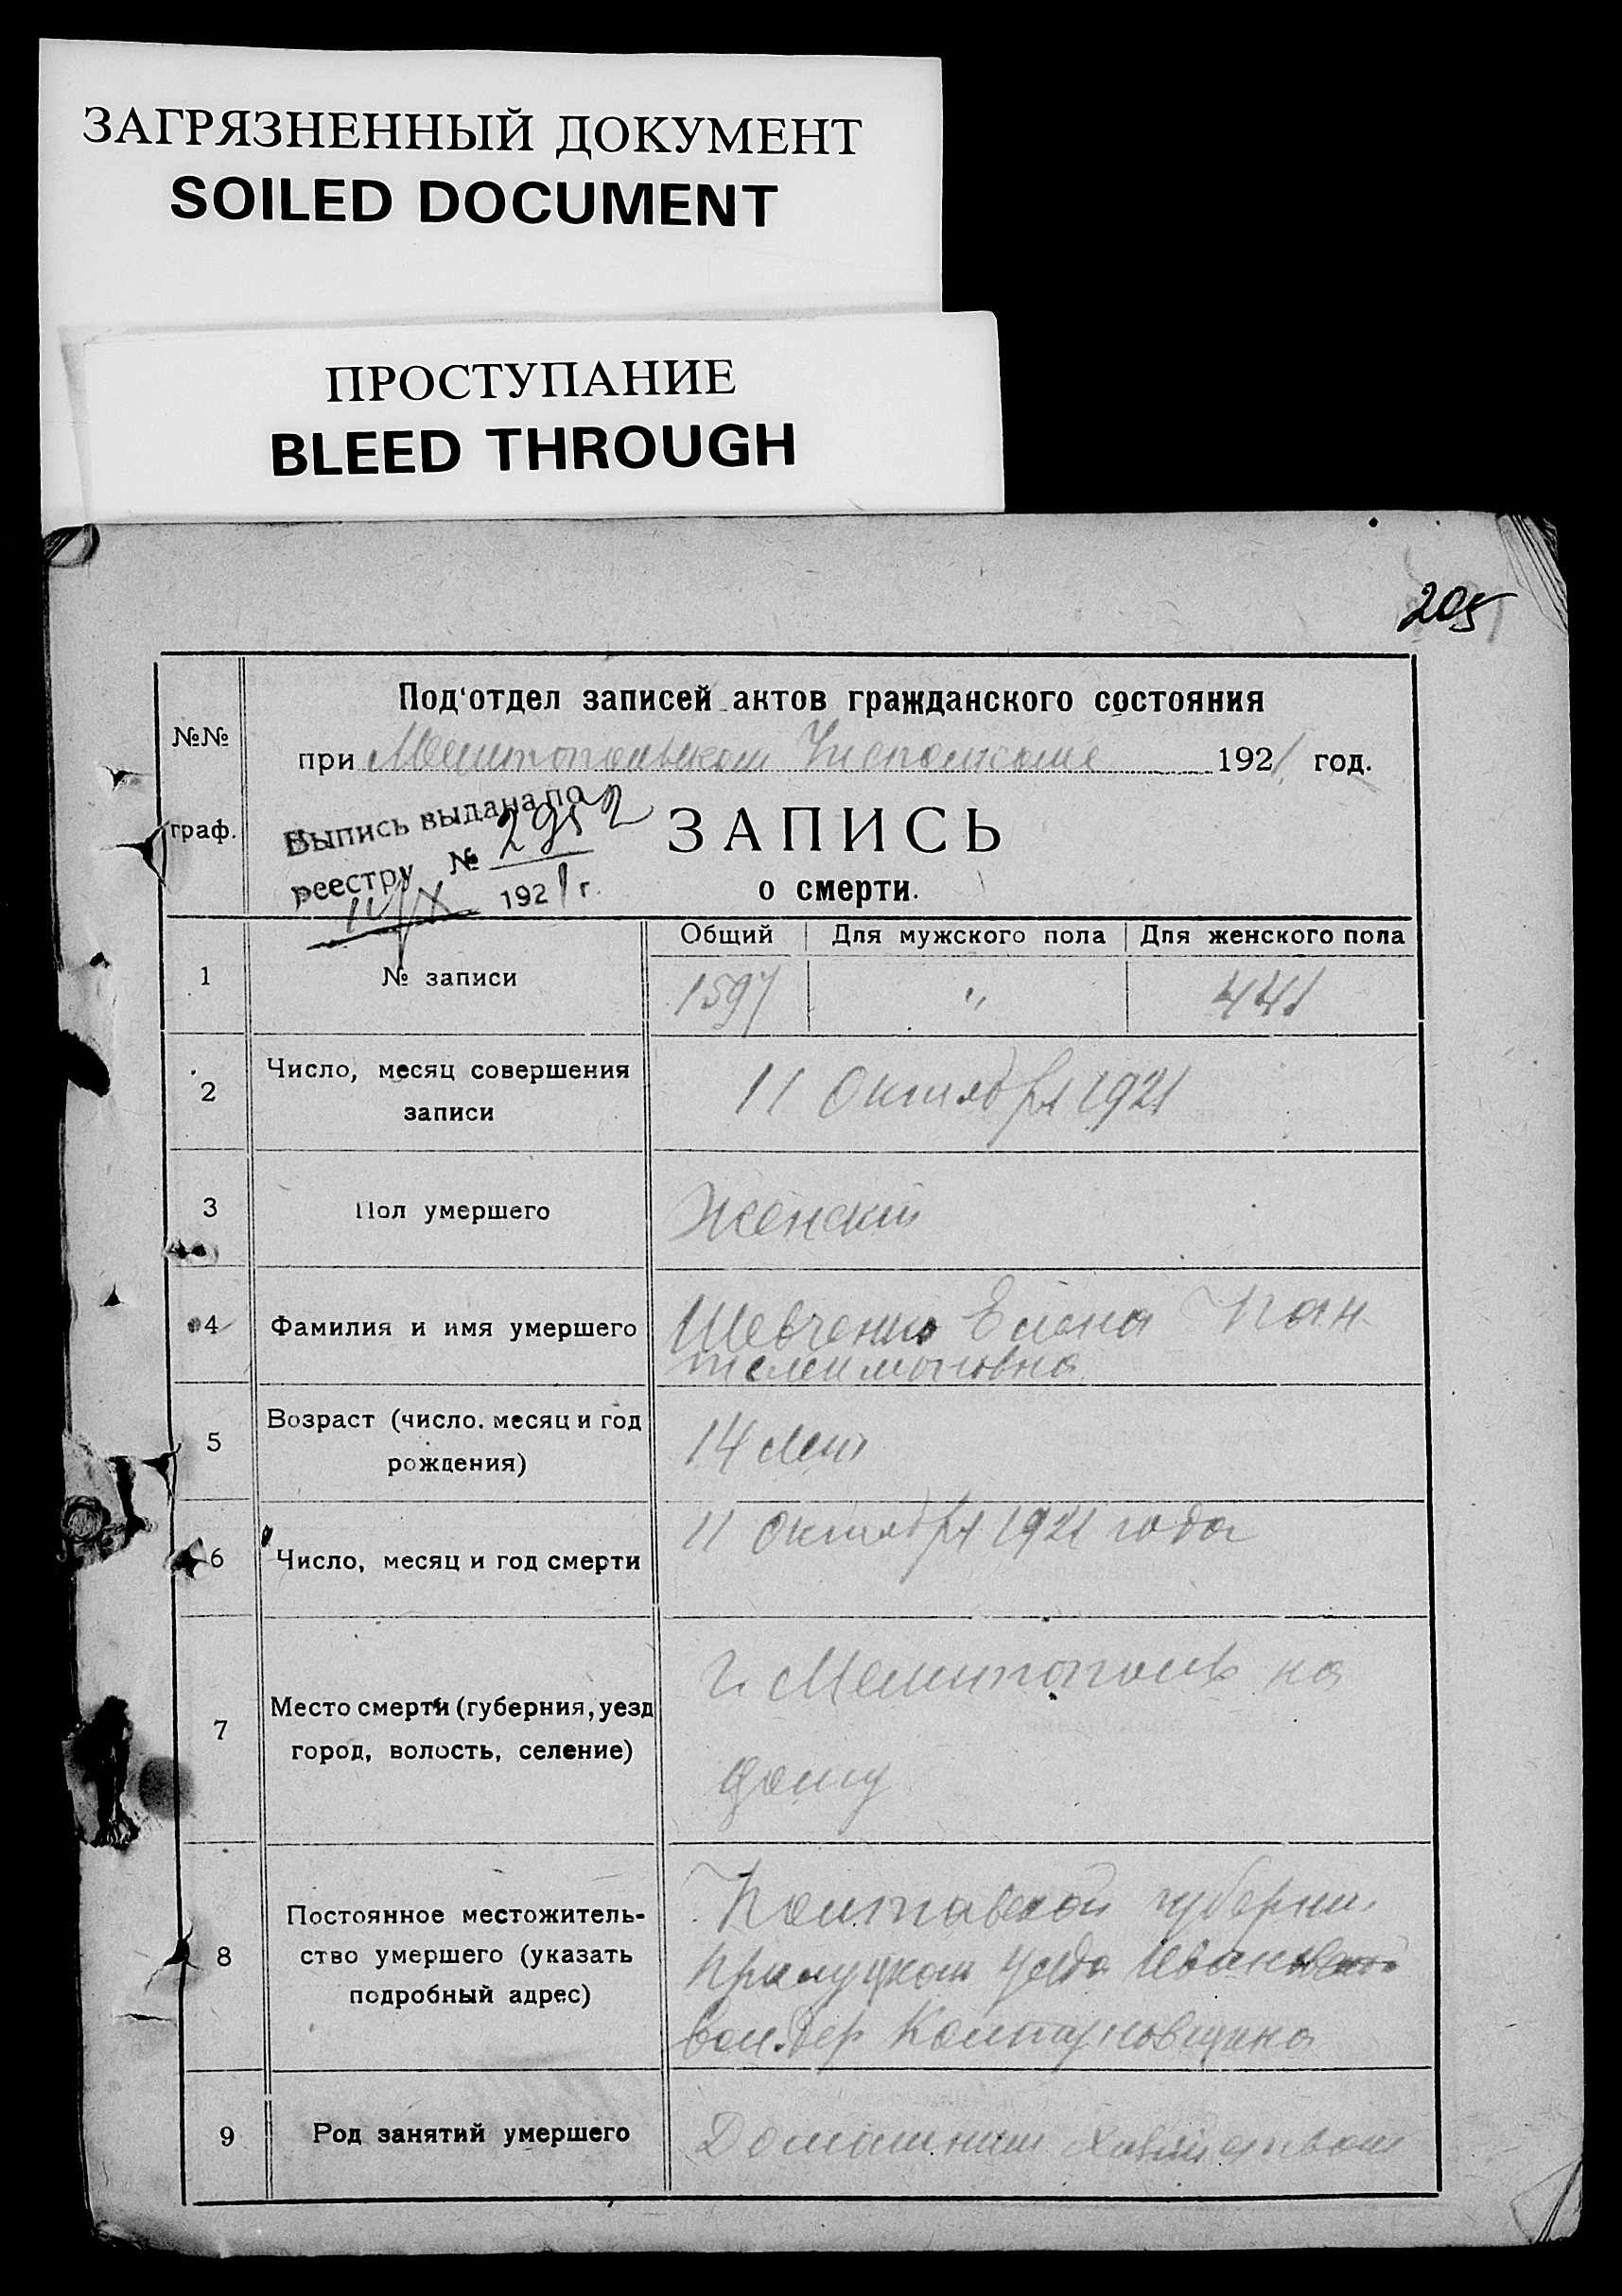 ЗАГРЯЗНЕННЫЙ ДОКУМЕНТ
SOILED DOCUMENT
ПРОСТУПАНИЕ
BLEED THROUGH
205
№№
граф.
Под'отдел записей актов гражданского состояния
при Мелитопольском Исполкоме 1921 год.
Выпись выдана по
реестру № 2952
11/X 1921 г.
ЗАПИСЬ
о смерти.
Общий Для мужского пола Для женского пола
1 № записи 1597 " 441
2 Число, месяц совершения
записи
11 Октября 1921
3 Пол умершего Женский
4 Фамилия и имя умершего Шевченко Елена Пан-
телеимоновна
5 Возраст (число, месяц и год
рождения)
14 лет
6 Число, месяц и год смерти 11 Октября 1921 года
7 Место смерти (губерния, уезд
город, волость, селение)
г. Мелитополь на
дому
8 Постоянное местожитель-
ство умершего (указать
подробный адрес)
Полтавской губерни
Прилуцком уезда
вол. дер
9 Род занятий умершего Домашним